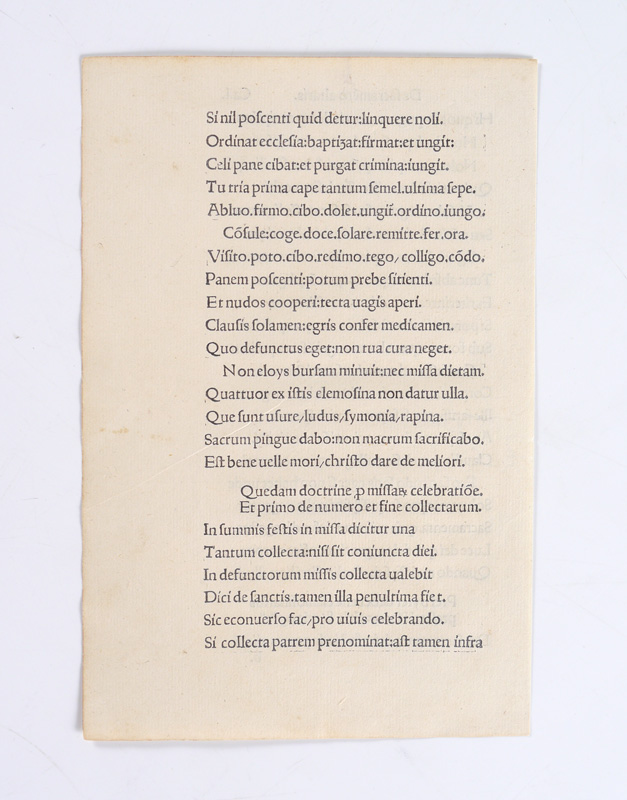 Si nil poſcenti quid detur:linquere noli.
Ordinat eccleſia:baptiʒat:firmat:et ungit:
Celi pane cibat:et purgat crimina:iungit.
Tu tria prima cape tantum ſemel.ultima ſepe.
Abluo.firmo.cibo.dolet.ungit̃.ordino.iungo.
Cõſule:coge.doce.ſolare.remitte.fer.ora.
Viſito.poto.cibo.redimo.tego/colligo.cõdo.
Panem poſcenti:potum prebe ſitienti.
Et nudos cooperi:tecta uagis aperi.
Clauſis ſolamen:egris confer medicamen.
Quo defunctus eget:non tua cura neget.
Non eloys burſam minuit:nec miſſa dietam.
Quattuor ex iſtis elemoſina non datur ulla.
Que ſunt uſure/ludus/ſymonia/rapina.
Sacrum pingue dabo:non macrum ſacrificabo.
Eſt bene uelle mori/chriſto dare de meliori.
Quedam doctrine ꝓ miſſaꝝ celebratiõe.
Et primo de numero et fine collectarum.
In ſummis feſtis in miſſa dicitur una
Tantum collecta:niſi ſit coniuncta diei.
In defunctorum miſſis collecta ualebit
Dici de ſanctis.tamen illa penultima fiet.
Sic econuerſo fac/pro uiuis celebrando.
Si collecta patrem prenominat:aſt tamen infra